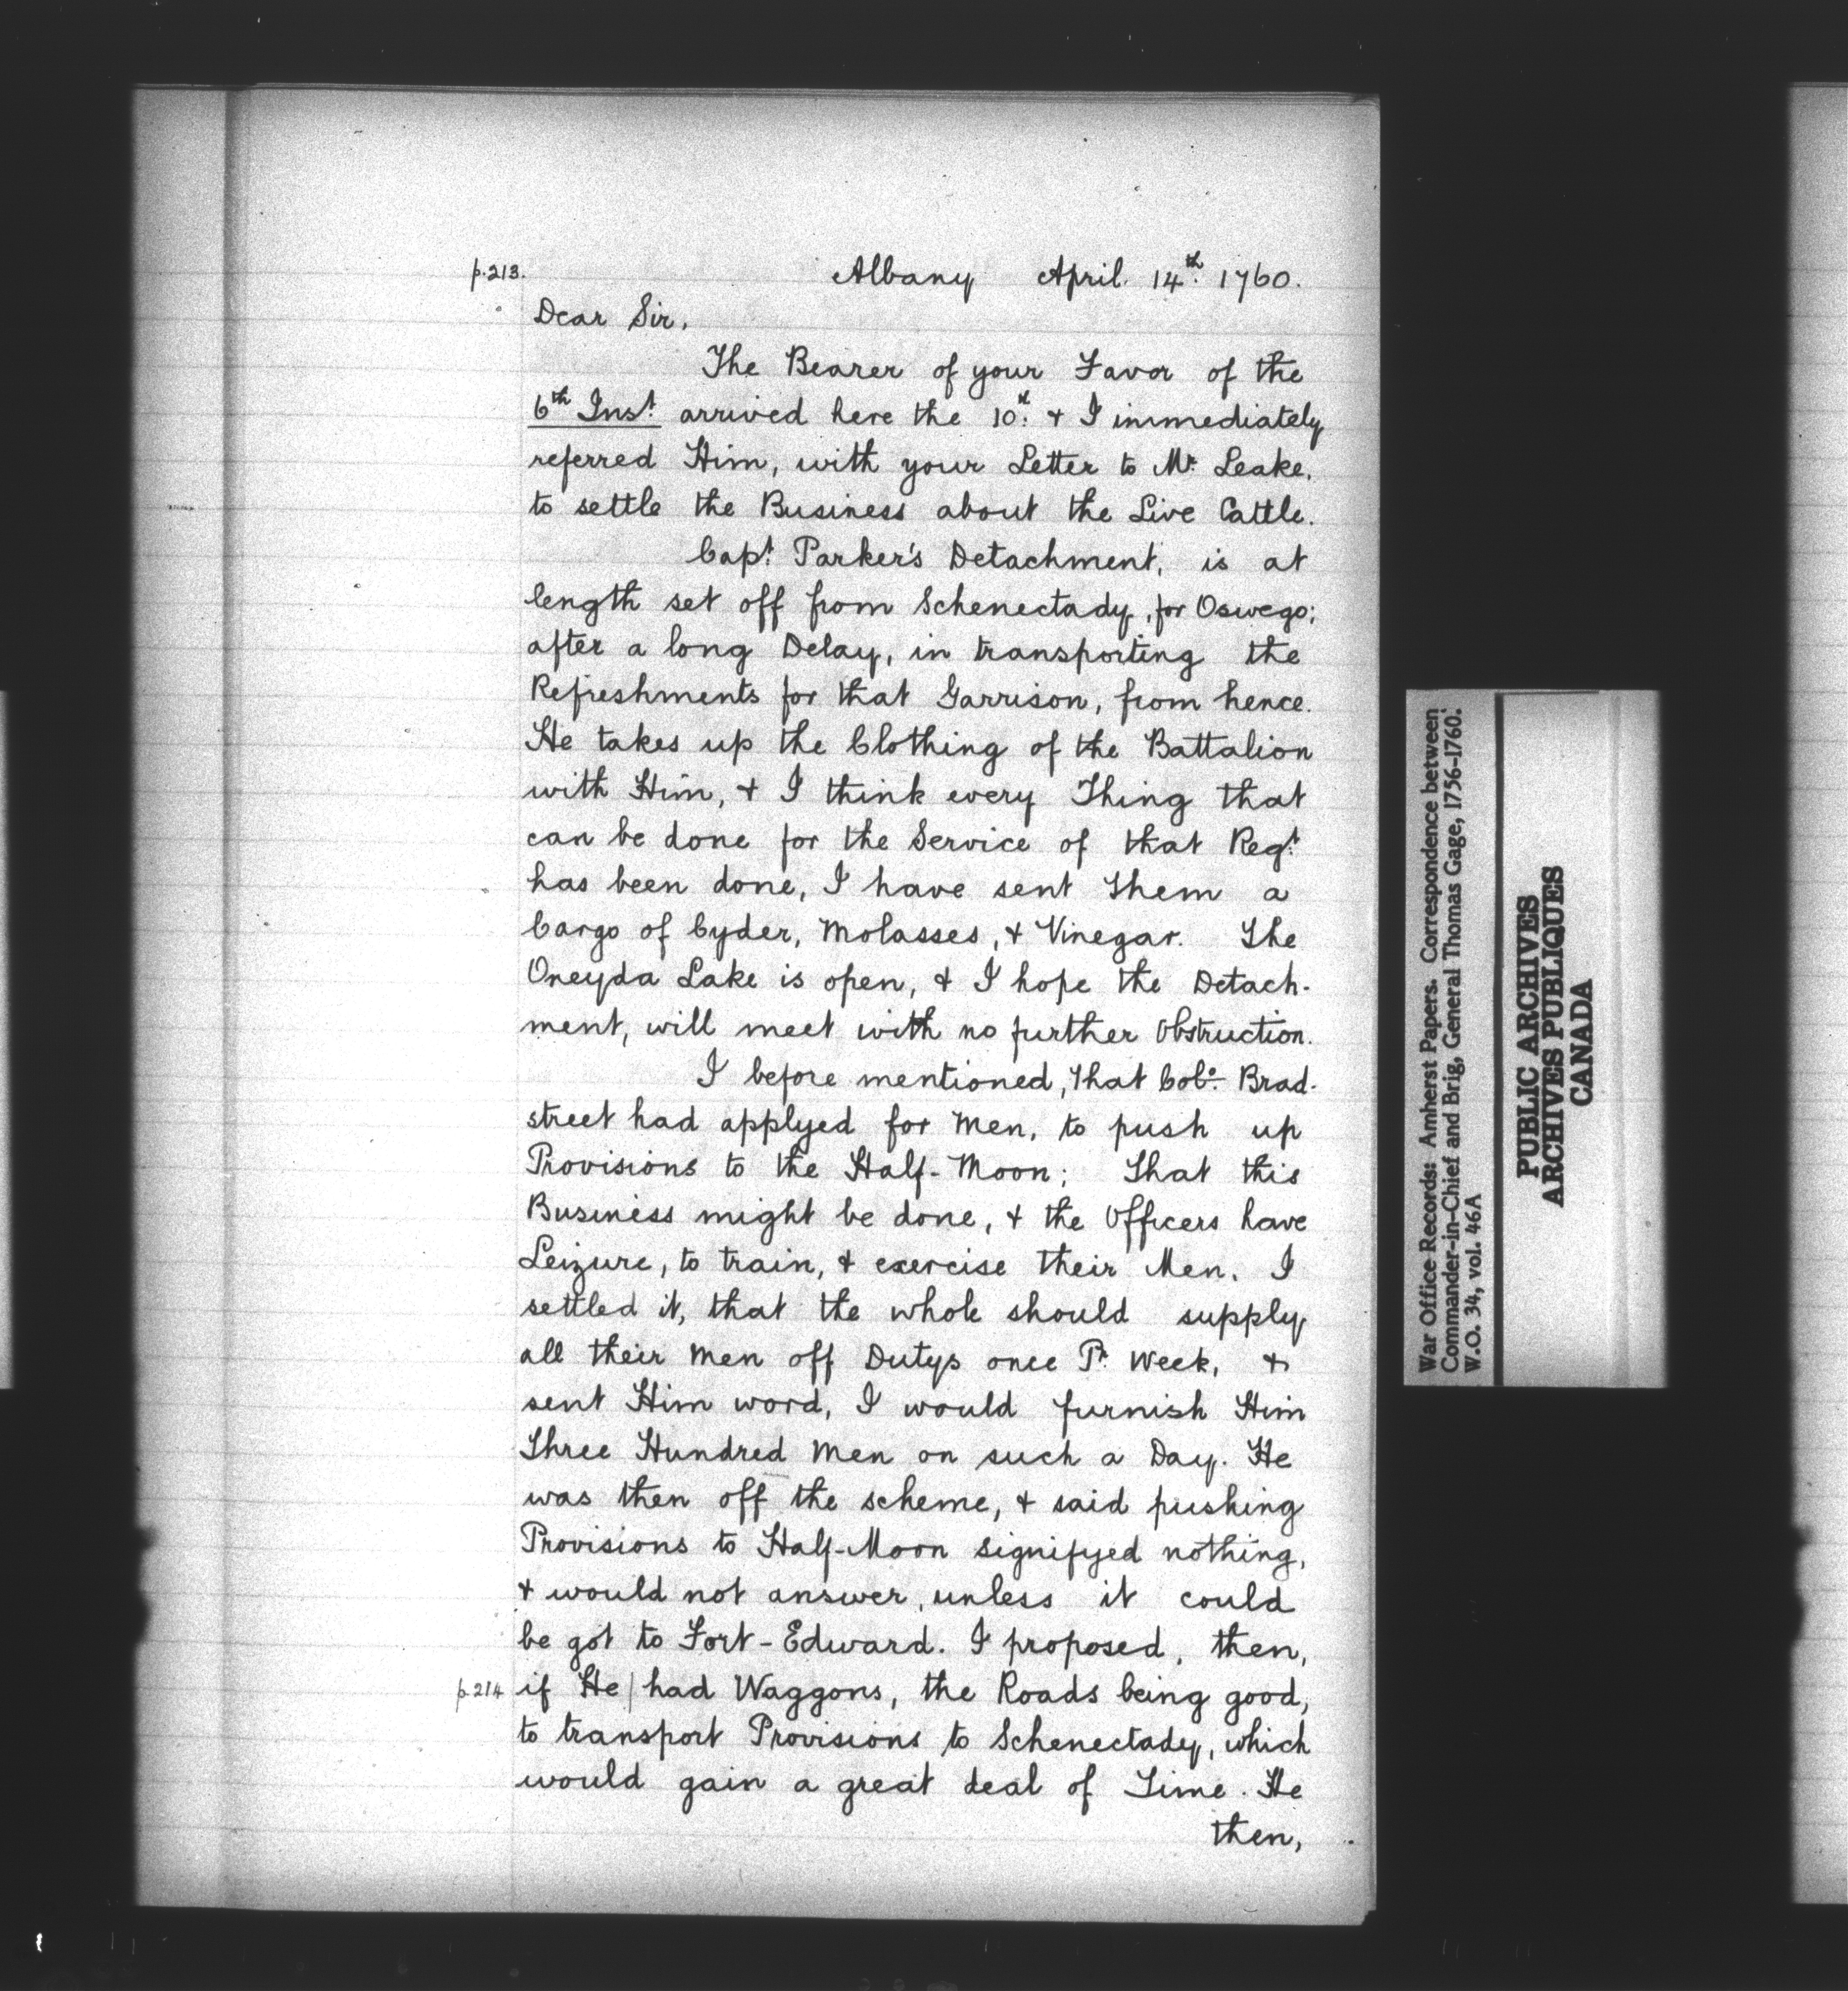 p.213.
Albany April 14th. 1760.
Dear Sir,
The Bearer of your Favor of the
6th Inst. arrived here the 10th. & I immediately
referred Him, with your Letter to Mr. Leake,
to settle the Business about the Live Cattle.
Capt. Parker's Detachment, is at
length set off from Schenectady, for Oswego;
after a long Delay, in transporting the
Refreshments for that Garrison, from hence.
He takes up the Clothing of the Battalion
with Him, & I think every Thing that
can be done for the Service of that Regt.
has been done, I have sent them a
Cargo of Cyder, Molasses, & Vinegar. The
Oneyda Lake is open, & I hope the Detach-
ment, will meet with no further Obstruction.
I before mentioned, that Colo. Brad-
street had applyed for Men, to push up
Provisions to the Half-Moon; That this
Business might be done, & the Officers have
Leizure, to train, & exercise their Men, I
settled it, that the whole should supply
all their Men off Dutys once Pr. Week, &
sent Him word, I would furnish Him
Three Hundred Men on such a Day. He
was then off the scheme, & said pushing
Provisions to Half-Moon signifyed nothing,
& would not answer, unless it could
be got to Fort-Edward. I proposed, then,
p.214 if He | had Waggons, the Roads being good,
to transport Provisions to Schenectady, which
would gain a great deal of Time. He
then,
War Office Records: Amherst Papers. Correspondence between
Commander-in-Chief and Brig, General Thomas Gage, 1756-1760.
W.O. 34, vol. 46A
PUBLIC ARCHIVES
ARCHIVES PUBLIQUES
CANADA